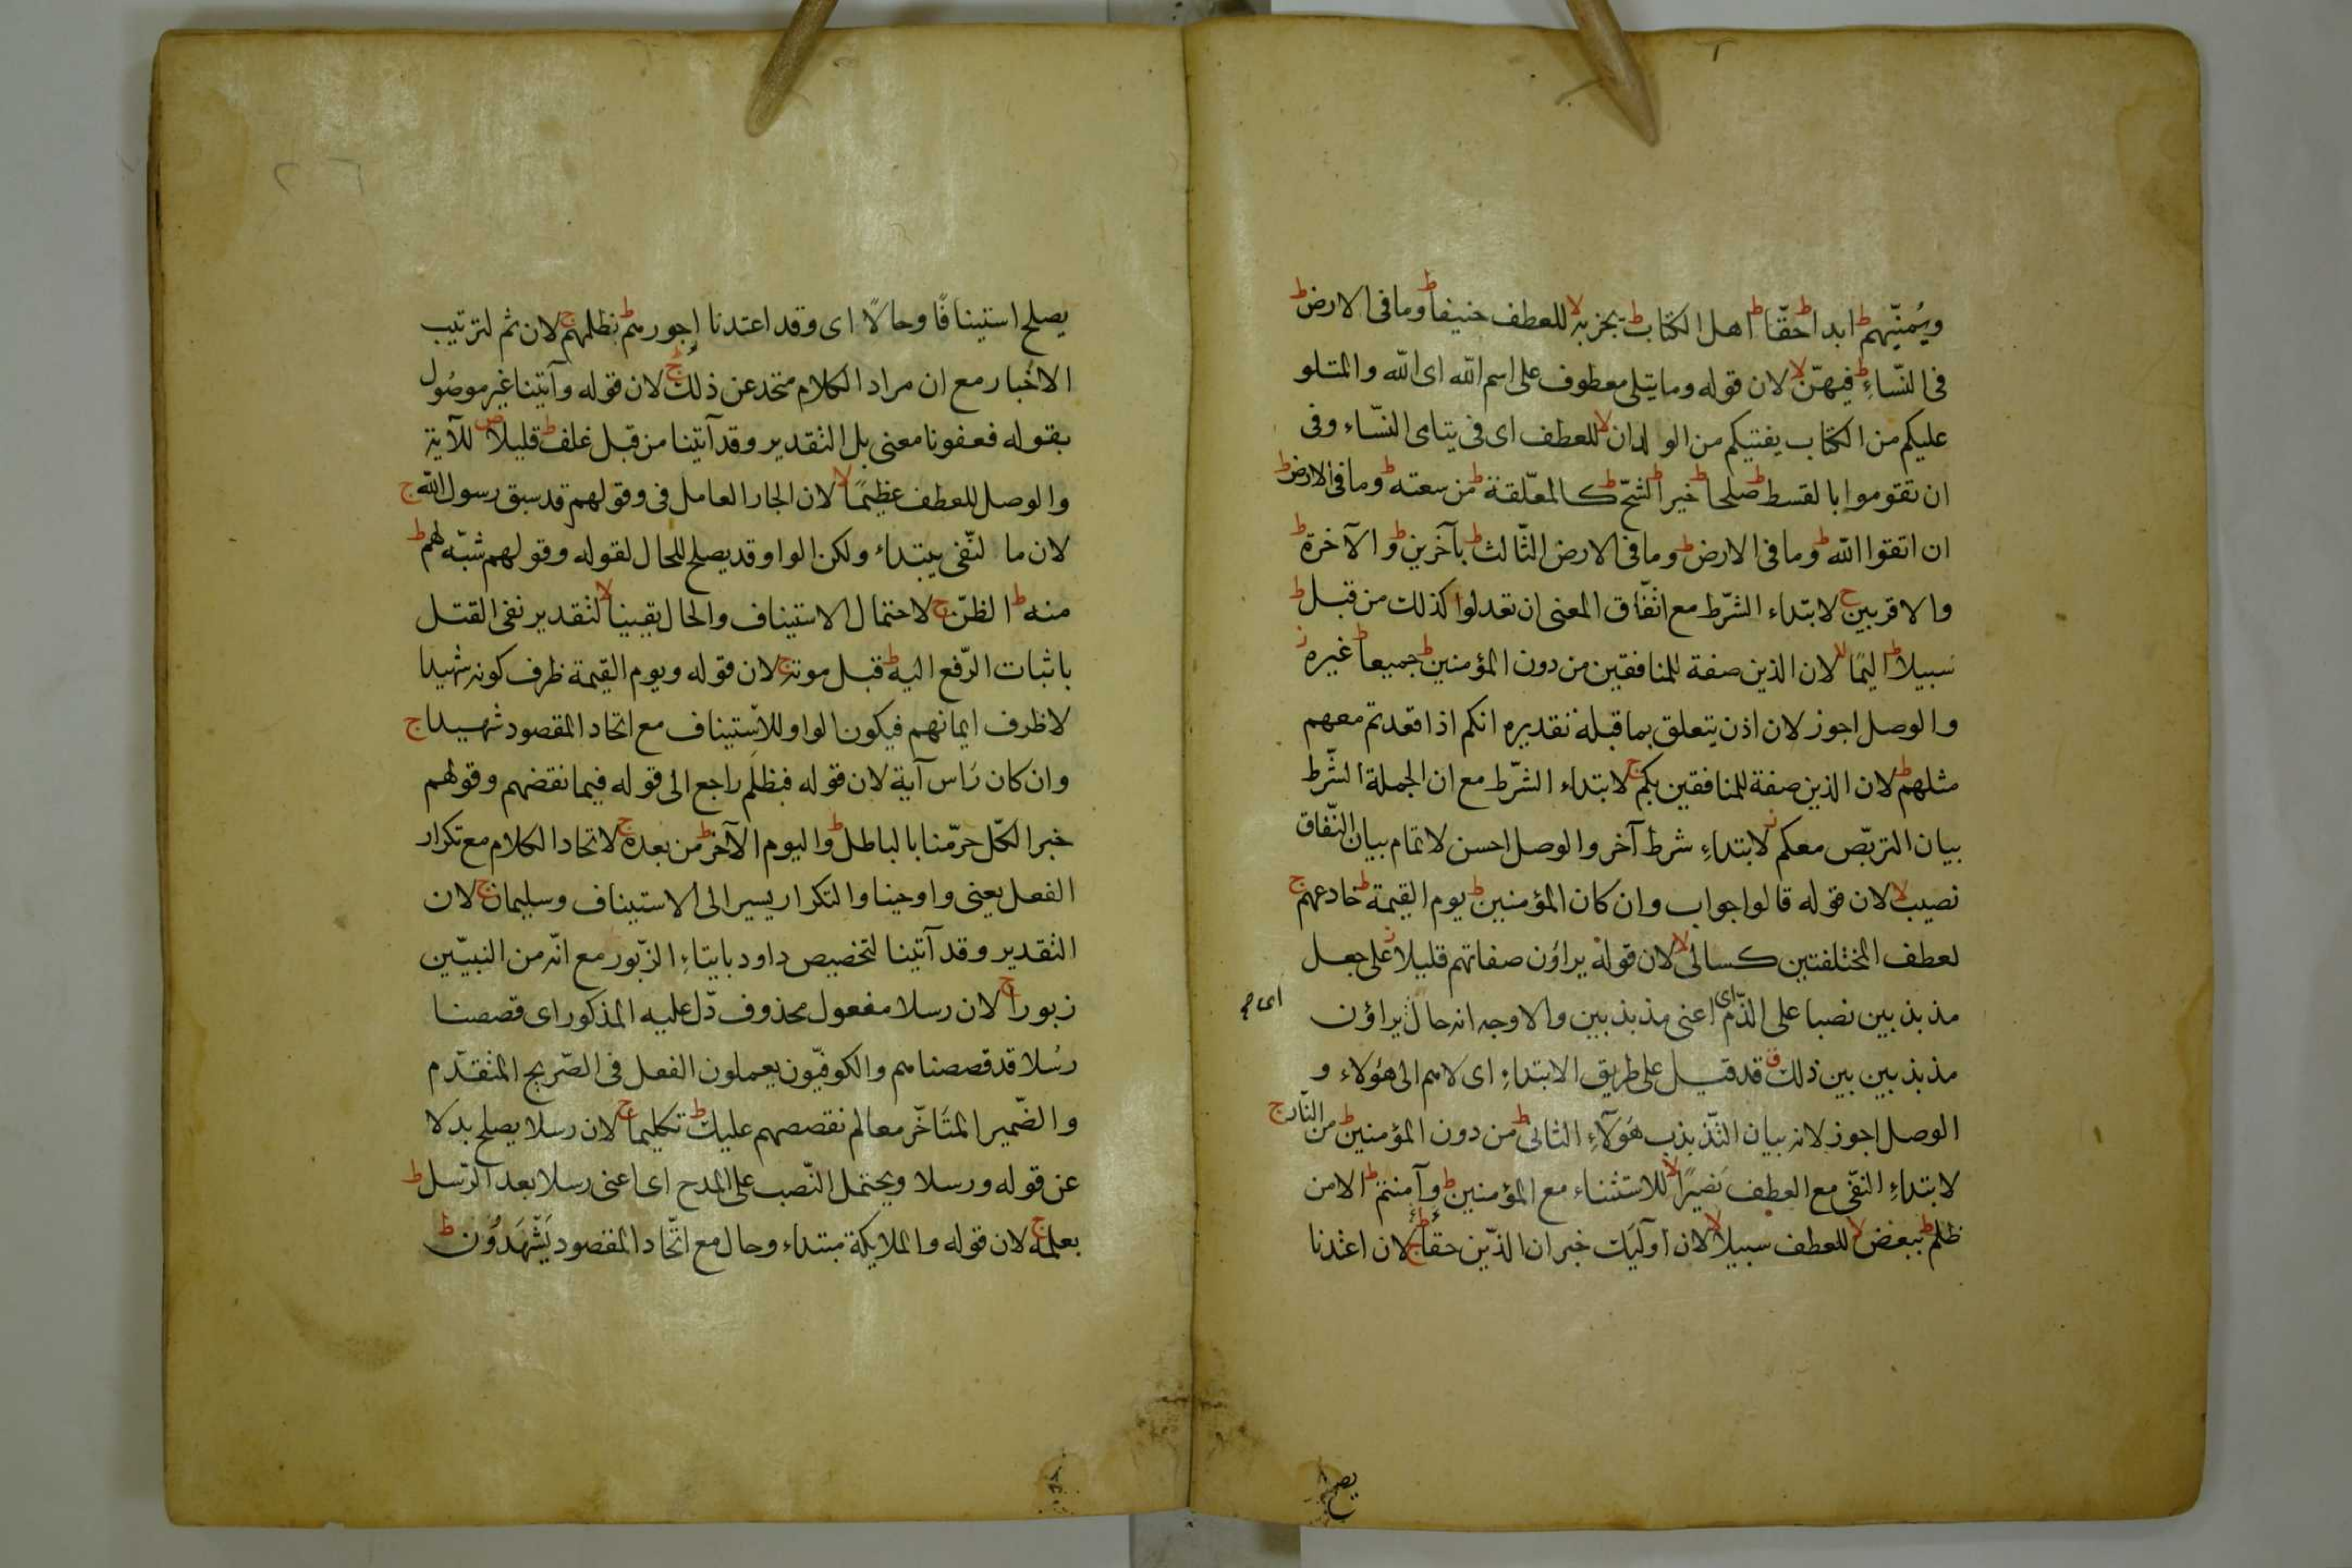 ويُمنّيهم ط ابدا ط حقّا ط اهل الكتاب ط يجز به لا للعطف حنيفا ط وما فى الارض ط
فى النّساءِ ط فيهنّ لا لان قوله وما يتلى معطوف على اسم الله اى الله والمتلو
عليكم من الكتاب يفتيكم من الولدان لا للعطف اى فى يتامى النّساء وفى
ان تقوموا بالقسط ط صلحا ط خير ط الشحّ ط كالمعلّقة ط من سعته ط وما فى الارض ط
ان اتقوا الله ط وما فى الارض ط وما فى الارض الثّالث ط بآخرين ط والآخرة ط
والاقربين ج لابتداء الشّرط مع اتّفاق المعنى ان تعدلوا كذلك من قبل ط
سبيلا ط اليمًا لا لان الذين صفة للمنافقين من دون المؤمنين ط جميعا ط غيره ز
والوصل اجوز لان اذن يتعلق بما قبله تقديره انكم اذا قعدتم معهم
مثلهم ط لان الذين صفة للمنافقين بكم ج لابتداء الشّرط مع ان الجملة الشّرط
بيان التربّص معكم ز لابتداءِ شرط آخر والوصل احسن لاتمام بيان النّفاق
نصيب لا لان قوله قالوا جواب وان كان المؤمنين ط يوم القيمة ط خادعهم ج
لعطف المختلفتين كسالى لا لان قوله يراؤن صفاتهم قليلا ز على جعل
مذبذبين نصبا على الذّم اى اعنى مذبذبين والاوجه انه حال يراؤن
مذبذبين بين ذلك ق قد قيل على طريق الابتداءِ اى لاهم الى هؤلاء و
الوصل اجوز لانه بيان التّذبذب هَؤلآءِ الثانى ط من دون المؤمنين ط من النّار ج
لابتداءِ النّفى مع العطف نَصيرًا لا للاستثناء مع المؤمنين ط وآمنتم ط الا من
ظلم ط ببعض لا للعطف سبيلا لا لان اولئك خبر ان الذّين حقا ج لان اعتدنا
يصلح استينافًا وحالًا اى وقد اعتدنا اجورهم ط بظلمهم ج لان ثم لترتيب
الاخبار مع ان مراد الكلام متحد عن ذلك ج لان قوله وآتينا غير موصُول
بقوله فعفونا معنى بل التقدير وقد آتينا من قبل غلف ط قليلا ص للآية
والوصل للعطف عظيمًا لا لان الجار العامل فى وقولهم قد سبق رسول الله ج
لان ما لنّفى يبتداء ولكن الواو قد يصلح للحال لقوله وقولهم شبّه لهم ط
منه ط الظنّ ج لاحتمال الاستيناف والحال يقينا لا لتقدير نفى القتل
باثبات الرّفع اليه ط قبل موته ج لان قوله ويوم القيمة ظرف كونه شهيدا
لا ظرف ايمانهم فيكون الواو للاستيناف مع اتحاد المقصود شهيدا ج
وان كان رَاس آية لان قوله فبظلم راجع الى قوله فبما نقضهم وقولهم
خبر الكّل حرّمنا بالباطل ط واليوم الآخر ط من بعده ج لاتحاد الكلام مع تكرار
الفعل يعنى واوحينا والتكرار يسير الى الاستيناف وسليمان ج لان
التقدير وقد آتينا لتخصيص داود بايتاءِ الزّبور مع انّه من النبيّين
زبورا ج لان رسلا مفعول محذوف دّل عليه المذكور اى قصصنا
رسُلا قد قصصناهم والكوفيّون يعملون الفعل فى الصّريح المتقدّم
والضّمير المتَاخّر معا لم نقصصهم عليك ط تكليما ج لان رسلا يصلح بدلا
عن قوله ورسلا ويحتمل النّصب على المدح اى اعنى رسلا بعد الرّسل ط
بعلمه ج لان قوله والملايكة مبتداء وحال مع اتّحاد المقصود يَشْهَدُون ط
اى هم
يصلح